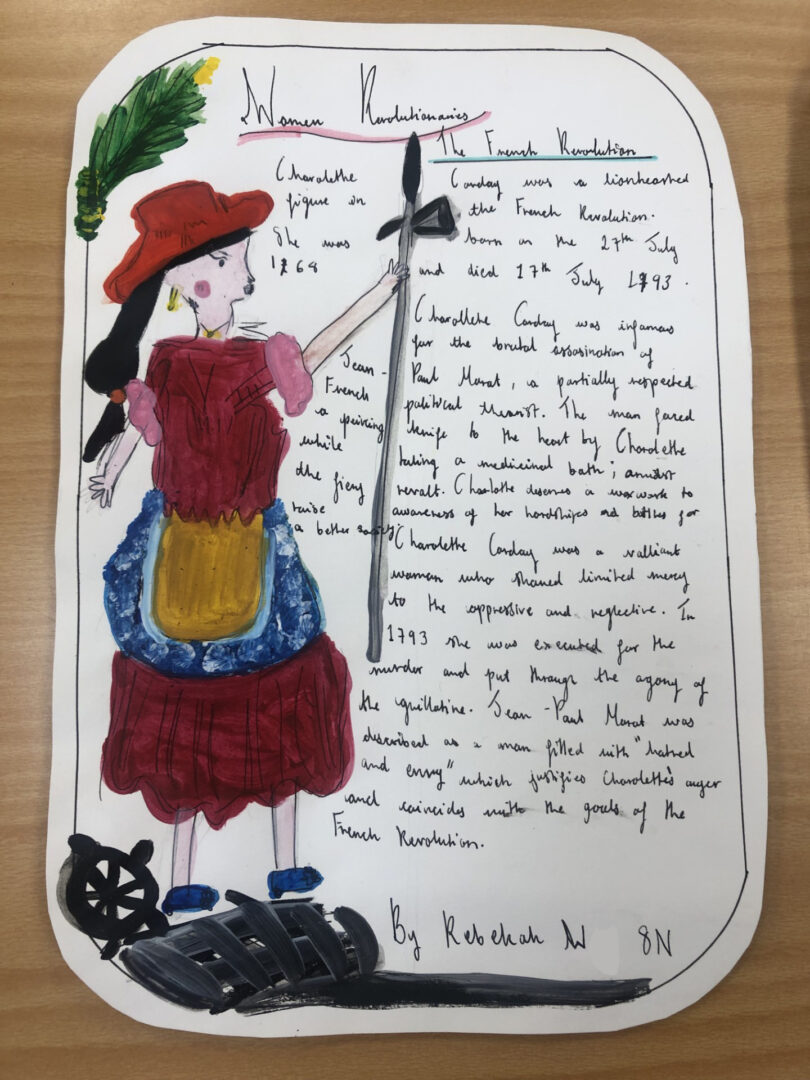 Women Revolutionaries
The French Revolution
Charolethe Corday was a lionhearted
figure in the French Revolution.
She was born on the 27th July
1768 and died 17th July 1793.
Charollethe Corday was infamous
for the brutal assasination of
Jean - Paul Marat, a partially respected
French political theorist. The man faced
a peircing knife to the heart by Charolethe
while taking a medicinal bath; amidst
the fiery revolt. Charlotte deserves a waxwork to
raise awareness of her hardships and battles for
a better society.
Charolethe Corday was a valliant
woman who shared limited mercy
to the oppressive and neglective. In
1793 she was executed for the
murder and put through the agony of
the guillatine. Jean - Paul Marat was
described as a man filled with "hatred
and envy" which justifies Charolethe's anger
and coincides with the goals of the
French Revolution.
By Rebekah W 8N